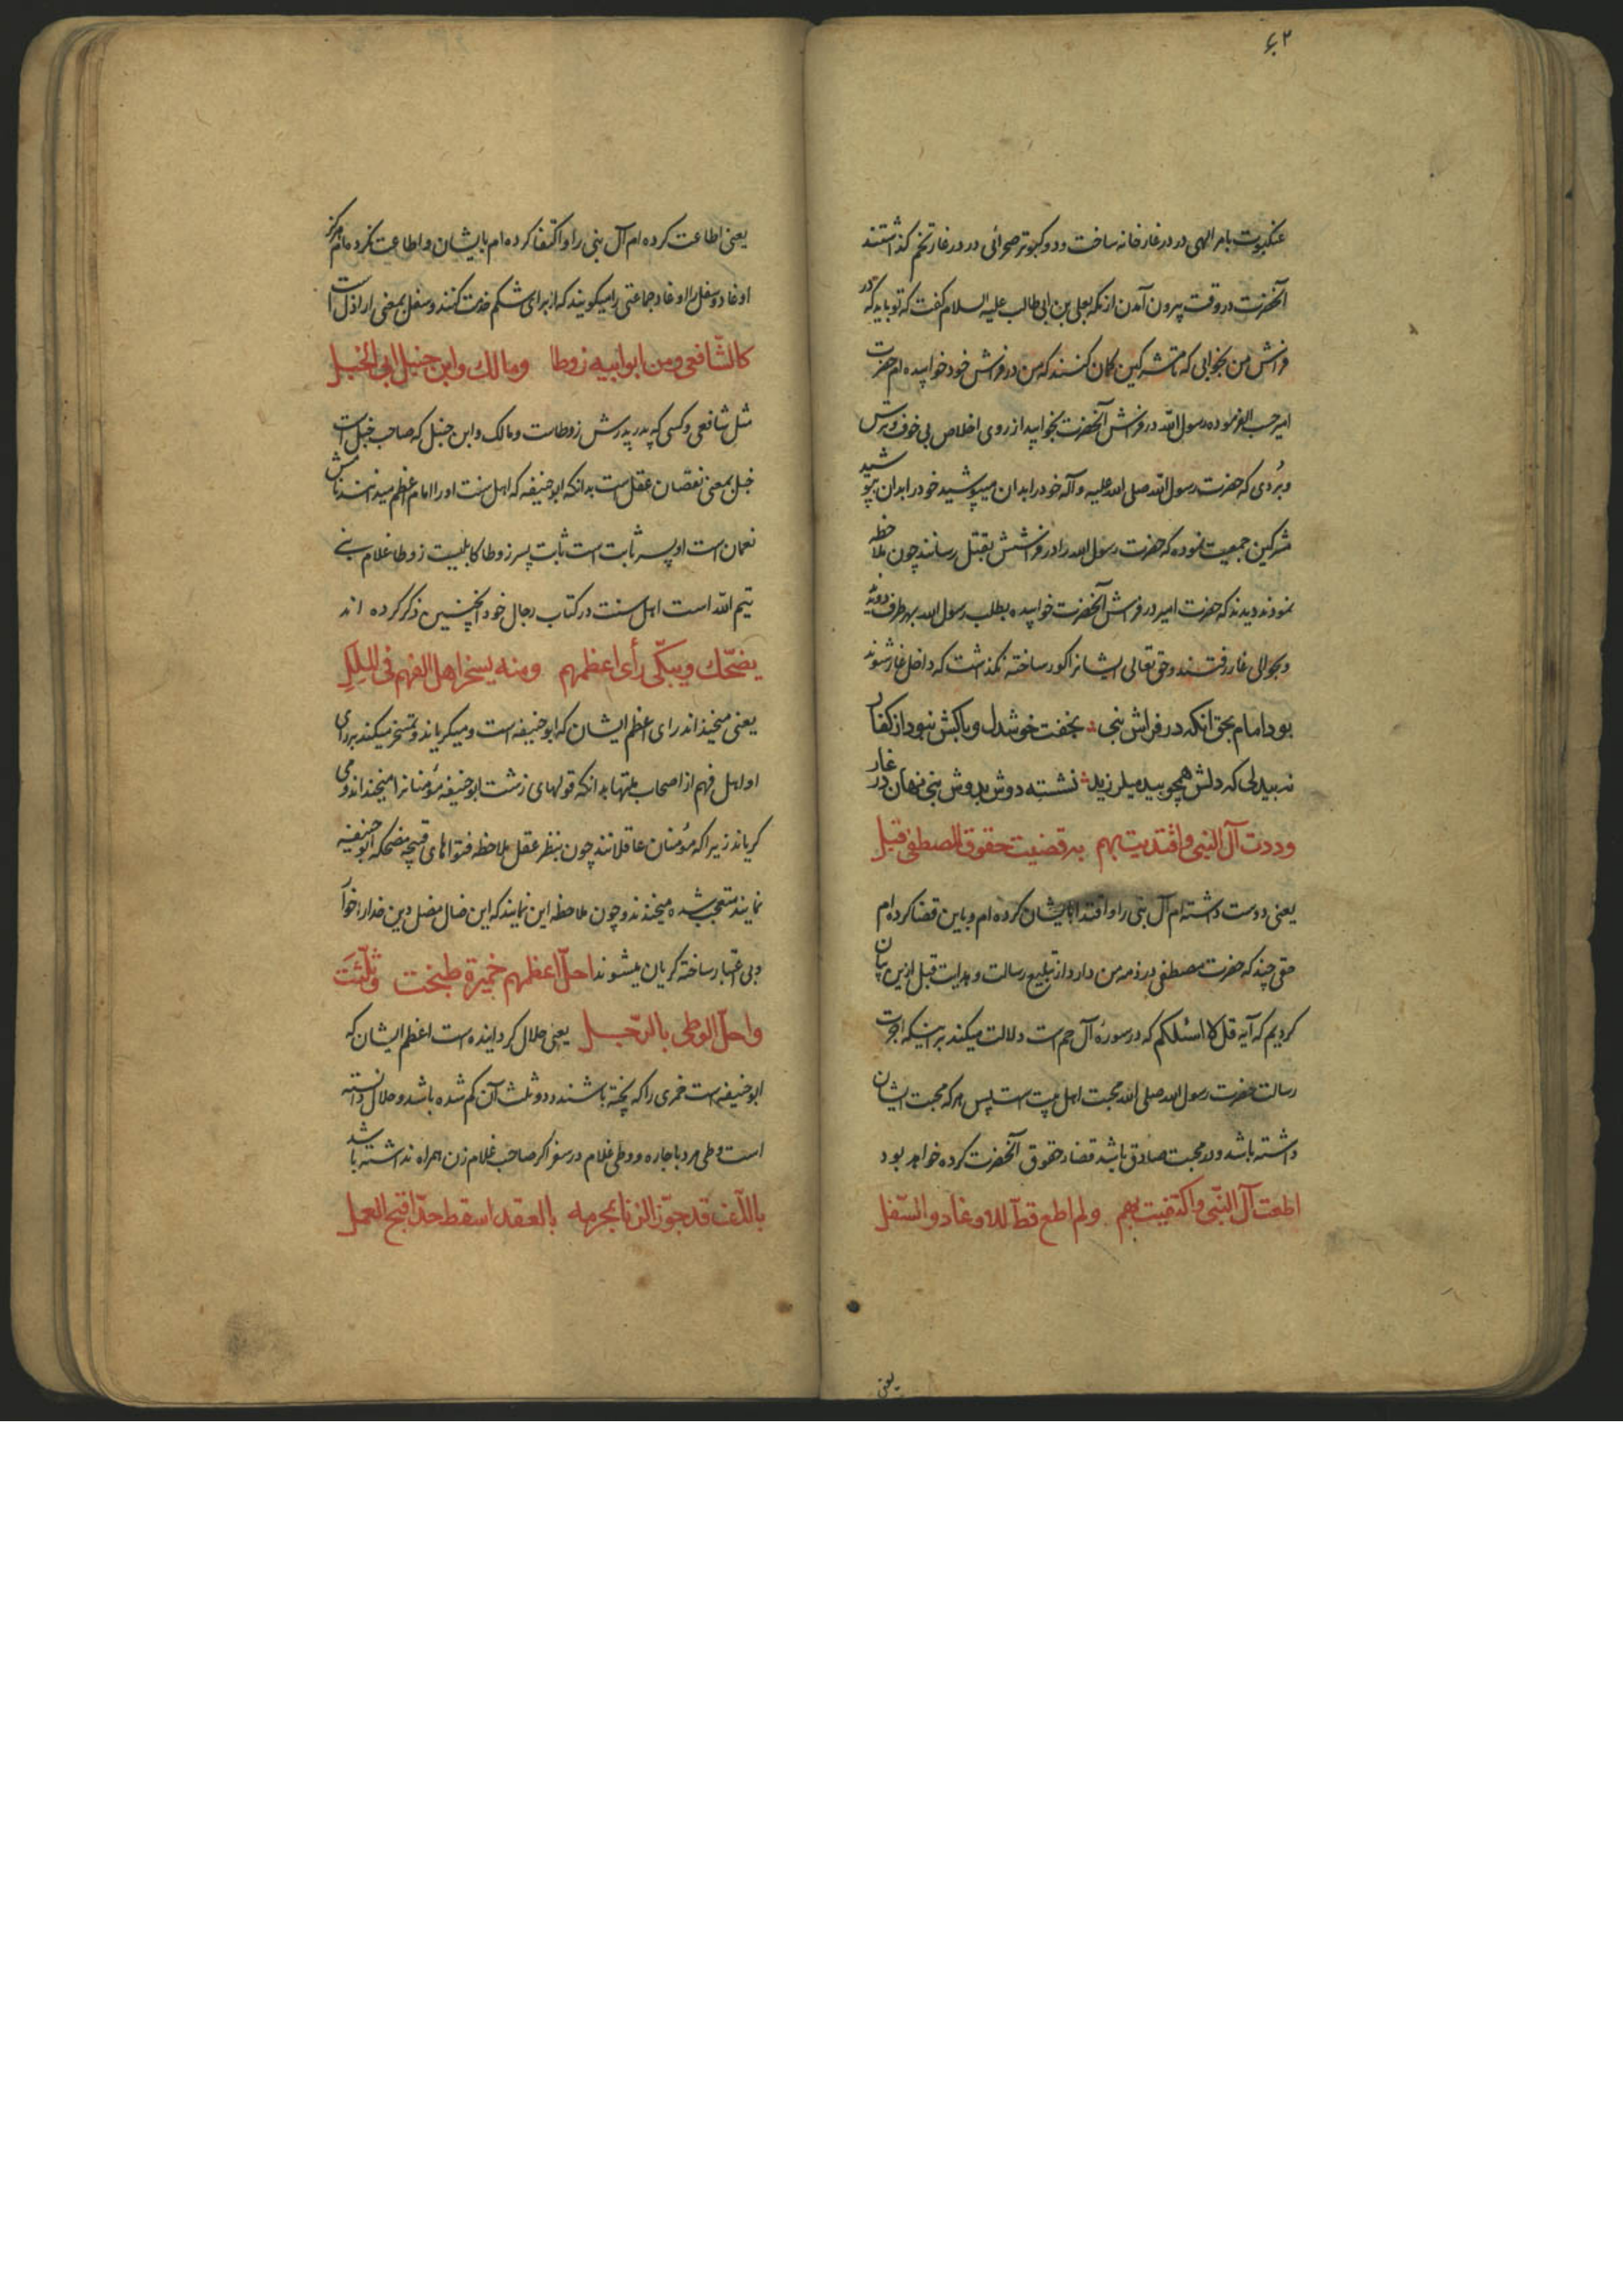 ۶۲
عنکبوت بامر الهی در در غار خانه ساخت و دو کبوتر صحرائی در در غار تخم گذاشتند
آنحضرت در وقت بیرون آمدن از مکه بعلی بن ابی طالب علیه السلام گفت که تو باید که در
فراش من بخوابی که تا مشرکین کمان کنند که من در فراش خود خوابیده ام حضرت
امیر حسب الفرموده رسول الله در فراش آنحضرت بخوابید از روی اخلاص بی خوف و ترس
و بُردی که حضرت رسول الله صلی الله علیه و آله خود را بدان میپوشید خود را بدان بپوشید
مشرکین جمعیت نموده که حضرت رسول الله را در فراشش بقتل رسانند چون ملاحظه
نمودند دیدند که حضرت امیر در فراش آنحضرت خوابیده بطلب رسول الله بهر طرف دویدند
و بحوالی غار رفتند و حق تعالی ایشانرا کور ساخته نگذاشت که داخل غار شوند
بود امام بحق انکه در فراش نبی بخفت خوشدل و باکش نبود از کفار
نه بیدلی که دلش همچو بید میلرزید نشسته دوش بدوش نبی نهان در غار
وددت آل النبی واقتدیت بهم به قضیت حقوق المصطفی قبل
یعنی دوست داشته ام آل نبی را و اقتدا بایشان کرده ام و باین قضا کرده ام
حقی چند که حضرت مصطفی در ذمه من دارد از تبلیغ رسالت و هدایت قبل ازین بیان
کردیم که آیه قل لا اسئلکم که در سوره آل حم است دلالت میکند بر اینکه اجرت
رسالت حضرت رسول الله صلی الله محبت اهل بیت است پس هر که محبت ایشان
داشته باشد و در محبت صادق باشد قضاء حقوق آنحضرت کرده خواهد بود
اطعت آل النبی واکتفیت بهم ولم اطع قطّ للاوغاد والسفل
یعنی
یعنی اطاعت کرده ام آل نبی را و اکتفا کرده ام بایشان و اطاعت نکرده ام هرگز
اوغاد و سفل را اوغاد جماعتی را میگویند که از برای شکم خدمت کنند و سفل بمعنی اراذل است
کالشافعی ومن ابو ابیه زوطا ومالک وابن حنبل ابی الخبل
مثل شافعی و کسی که پدر پدرش زوطاست و مالک و ابن حنبل که صاحب خبل است
خبل بمعنی نقصان عقل است بدانکه ابو حنیفه که اهل سنت او را امام اعظم میدانند نامش
نعمان است او پسر ثابت است ثابت پسر زوطا کابلیست زوطا غلام بنی
تیم الله است اهل سنت در کتاب رجال خود اینچنین ذکر کرده اند
یضحّک ویبکّی رأی اعظمهم ومنه یسخر اهل الفهم فی الملل
یعنی میخنداند رای اعظم ایشان که ابو حنیفه است و میگریاند و تمسخر میکنند بر رای
او اهل فهم از اصحاب ملتها بدانکه قولهای زشت ابو حنیفه مؤمنانرا میخنداند و می
گریاند زیرا که مؤمنان عاقلانند چون بنظر عقل ملاحظه فتواهای قبیحه مضحکه ابو حنیفه
نمایند متعجب شده میخندند و چون ملاحظه این نمایند که این ضال مضل دین خدا را خوار
و بی اعتبار ساخته گریان میشوند احلّ اعظمهم خمیرة طبخت وثلّثت
واحلّ الوطی بالرّحل یعنی حلال گردانیده است اعظم ایشان که
ابو حنیفه است خمری را که پخته باشند و دو ثلث آن کم شده باشد و حلال دانسته
است وطی مرد باجاره و وطی غلام در سفر اگر صاحب غلام زن همراه نداشته باشد
باللّف قد جوّز الزنا بمحرمه بالعقد اسقط حدّ اقبح العمل